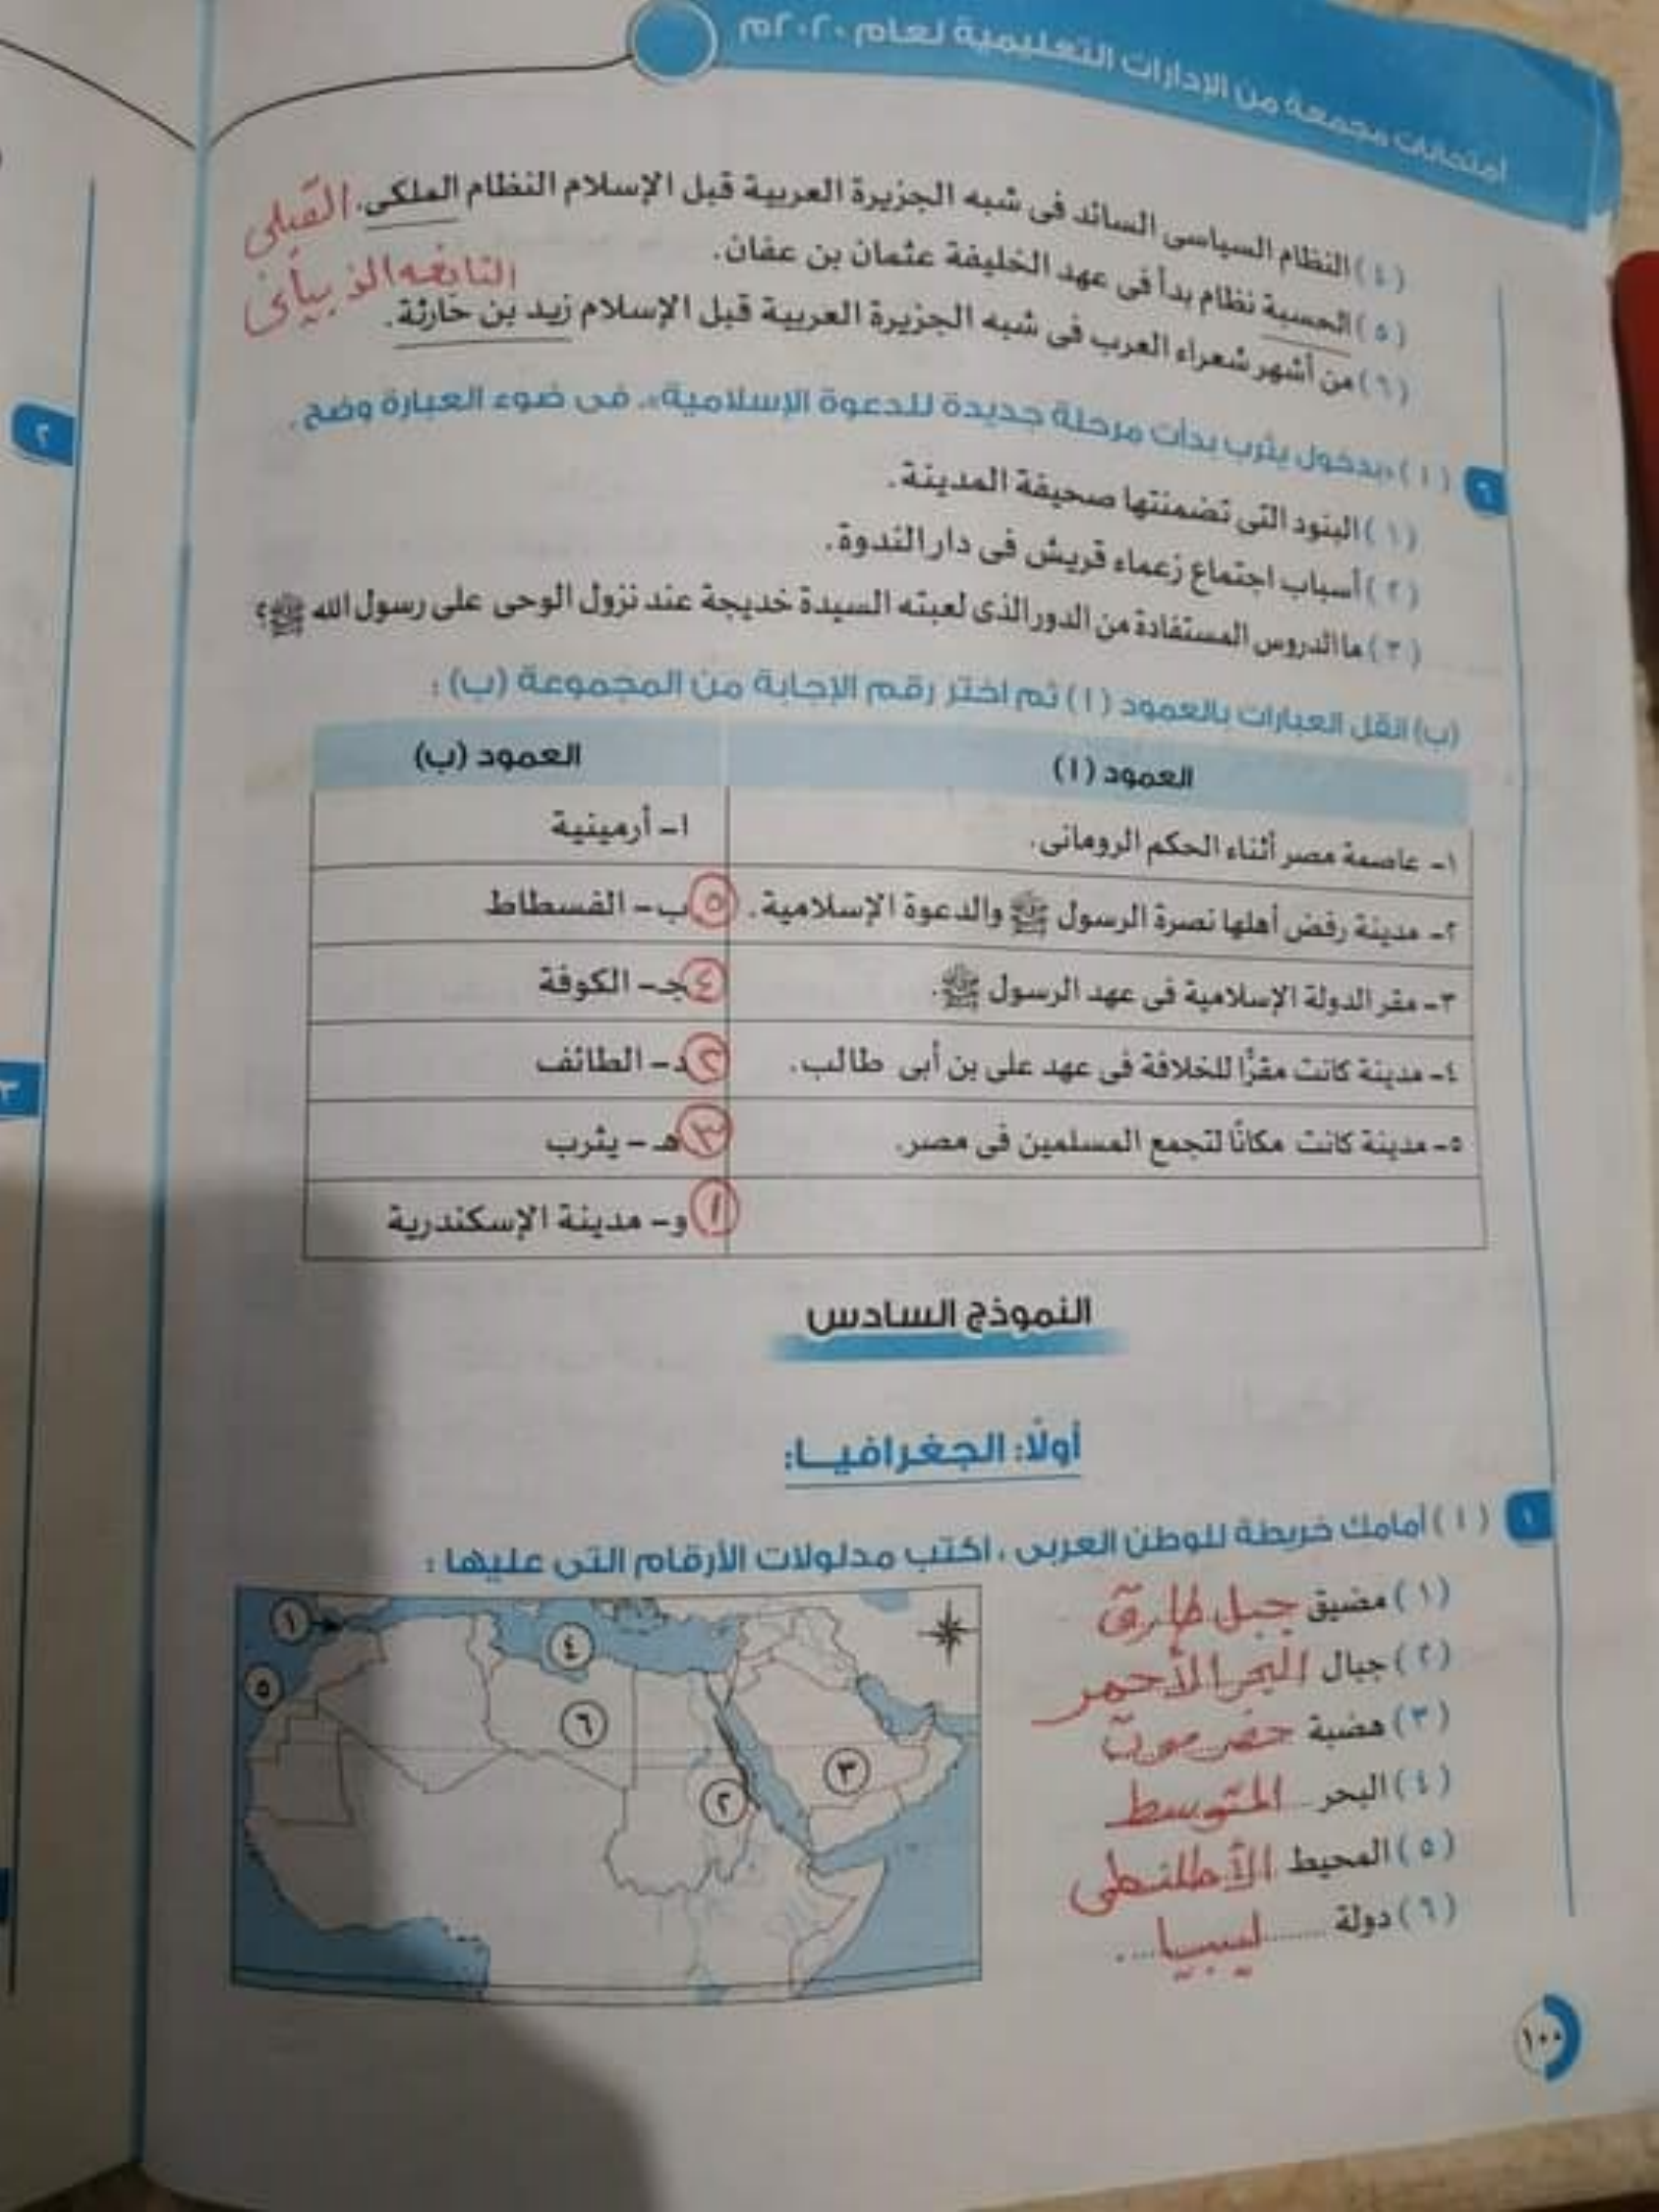 امتحانات مجمعة من الإدارات التعليمية لعام ٢٠٢٠م
(٤) النظام السياسى السائد فى شبه الجزيرة العربية قبل الإسلام النظام الملكى. القبلى
(٥) الحسبة نظام بدأ فى عهد الخليفة عثمان بن عفان.
(٦) من أشهر شعراء العرب فى شبه الجزيرة العربية قبل الإسلام زيد بن حارثة. النابغه الذبيانى
٦ (أ) «بدخول يثرب بدأت مرحلة جديدة للدعوة الإسلامية». فى ضوء العبارة وضح.
(١) البنود التى تضمنتها صحيفة المدينة.
(٢) أسباب اجتماع زعماء قريش فى دار الندوة.
(٣) ما الدروس المستفادة من الدور الذى لعبته السيدة خديجة عند نزول الوحى على رسول الله ﷺ؟
(ب) انقل العبارات بالعمود (أ) ثم اختر رقم الإجابة من المجموعة (ب) :
العمود (أ) العمود (ب)
١- عاصمة مصر أثناء الحكم الرومانى. أ- أرمينية
٢- مدينة رفض أهلها نصرة الرسول ﷺ والدعوة الإسلامية. ٥ ب- الفسطاط
٣- مقر الدولة الإسلامية فى عهد الرسول ﷺ. ٤ جـ- الكوفة
٤- مدينة كانت مقرًا للخلافة فى عهد على بن أبى طالب. ٢ د- الطائف
٥- مدينة كانت مكانًا لتجمع المسلمين فى مصر. ٣ هـ- يثرب
١ و- مدينة الإسكندرية
النموذج السادس
أولًا: الجغرافيـا:
١ (أ) أمامك خريطة للوطن العربى ، اكتب مدلولات الأرقام التى عليها :
(١) مضيق جبل طارق
(٢) جبال البحر الأحمر
(٣) هضبة حضرموت
(٤) البحر المتوسط
(٥) المحيط الأطلنطى
(٦) دولة ........ ليبيا ....
١
٤
٥
٦
٣
٢
١٠٠
٢
٣